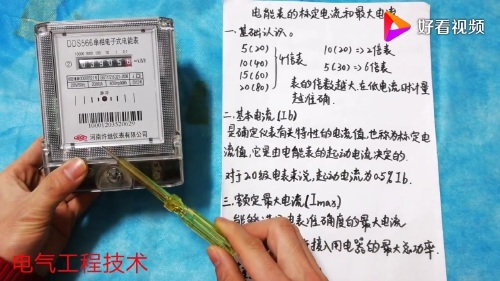 好看视频
DDS566单相电子式电能表
河南许继仪表有限公司
电气工程技术
电能表的标定电流和最大电流
一.基础认识。
5(20)
10(40)
15(60)
20(80)
4倍表
10(20)⇒2倍表
5(30)⇒6倍表
表的倍数越大,在低电流时计量
越准确.
二.基本电流(Ib)
是确定仪表有关特性的电流值,也称为标定电
流值,它是由电能表的起动电流决定的.
对于2.0级电表来说,起动电流为0.5%Ib.
三.额定最大电流(Imax)
电表准确度的最大电流
接入用电器的最大总功率.